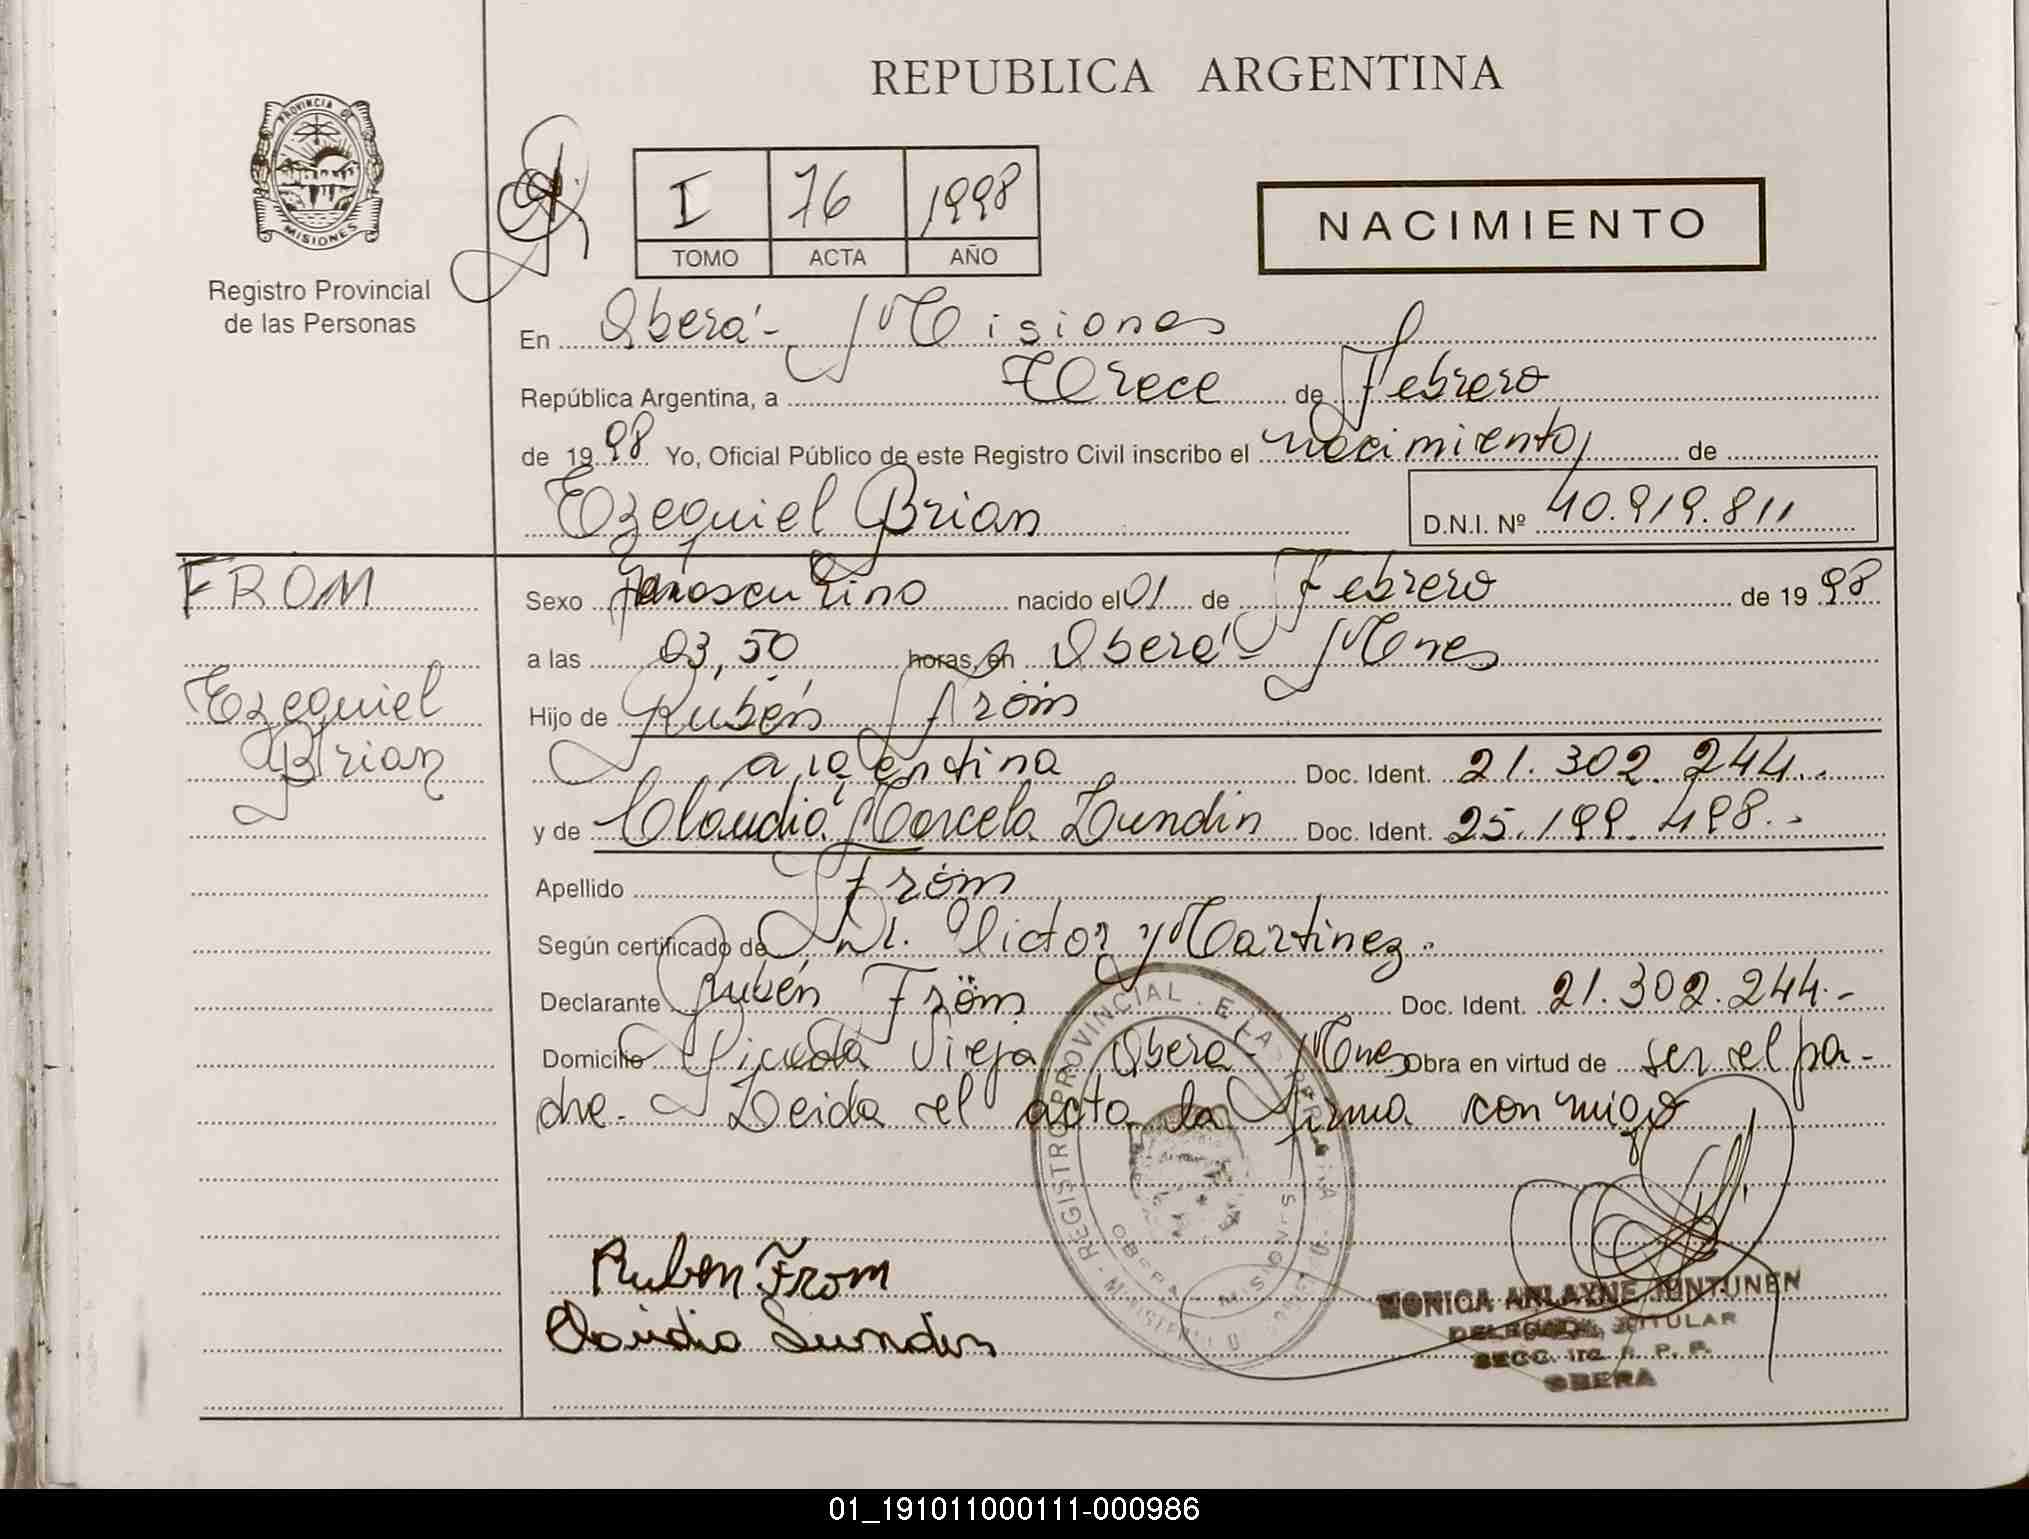 REPUBLICA ARGENTINA
PROVINCIA DE
MISIONES
Registro Provincial
de las Personas
I 76 1998
TOMO ACTA AÑO
NACIMIENTO
En Oberá - Misiones
República Argentina, a Trece de Febrero
de 1998 Yo, Oficial Público de este Registro Civil inscribo el nacimiento de
Ezequiel Brian D.N.I. Nº 40.919.811
FROM
Ezequiel
Brian
Sexo masculino nacido el 01 de Febrero de 1998
a las 03,50 horas, en Oberá - Mnes
Hijo de Rubén Fröm
argentina Doc. Ident. 21.302.244.-
y de Claudia Marcela Lundin Doc. Ident. 25.199.498.-
Apellido Fröm
Según certificado de Dr. Victor Martinez.-
Declarante Rubén Fröm Doc. Ident. 21.302.244.-
Domicilio Picada Vieja Oberá - Mnes Obra en virtud de ser el pa-
dre.- Leida el acta la firma conmigo
REGISTRO PROVINCIAL
OBERA - MISIONES
Ruben From
Claudia Lundin
MONICA ARLAYNE JUNTUNEN
DELEGADA TITULAR
SECC. 1ra. R. P. P.
OBERA
01_191011000111-000986